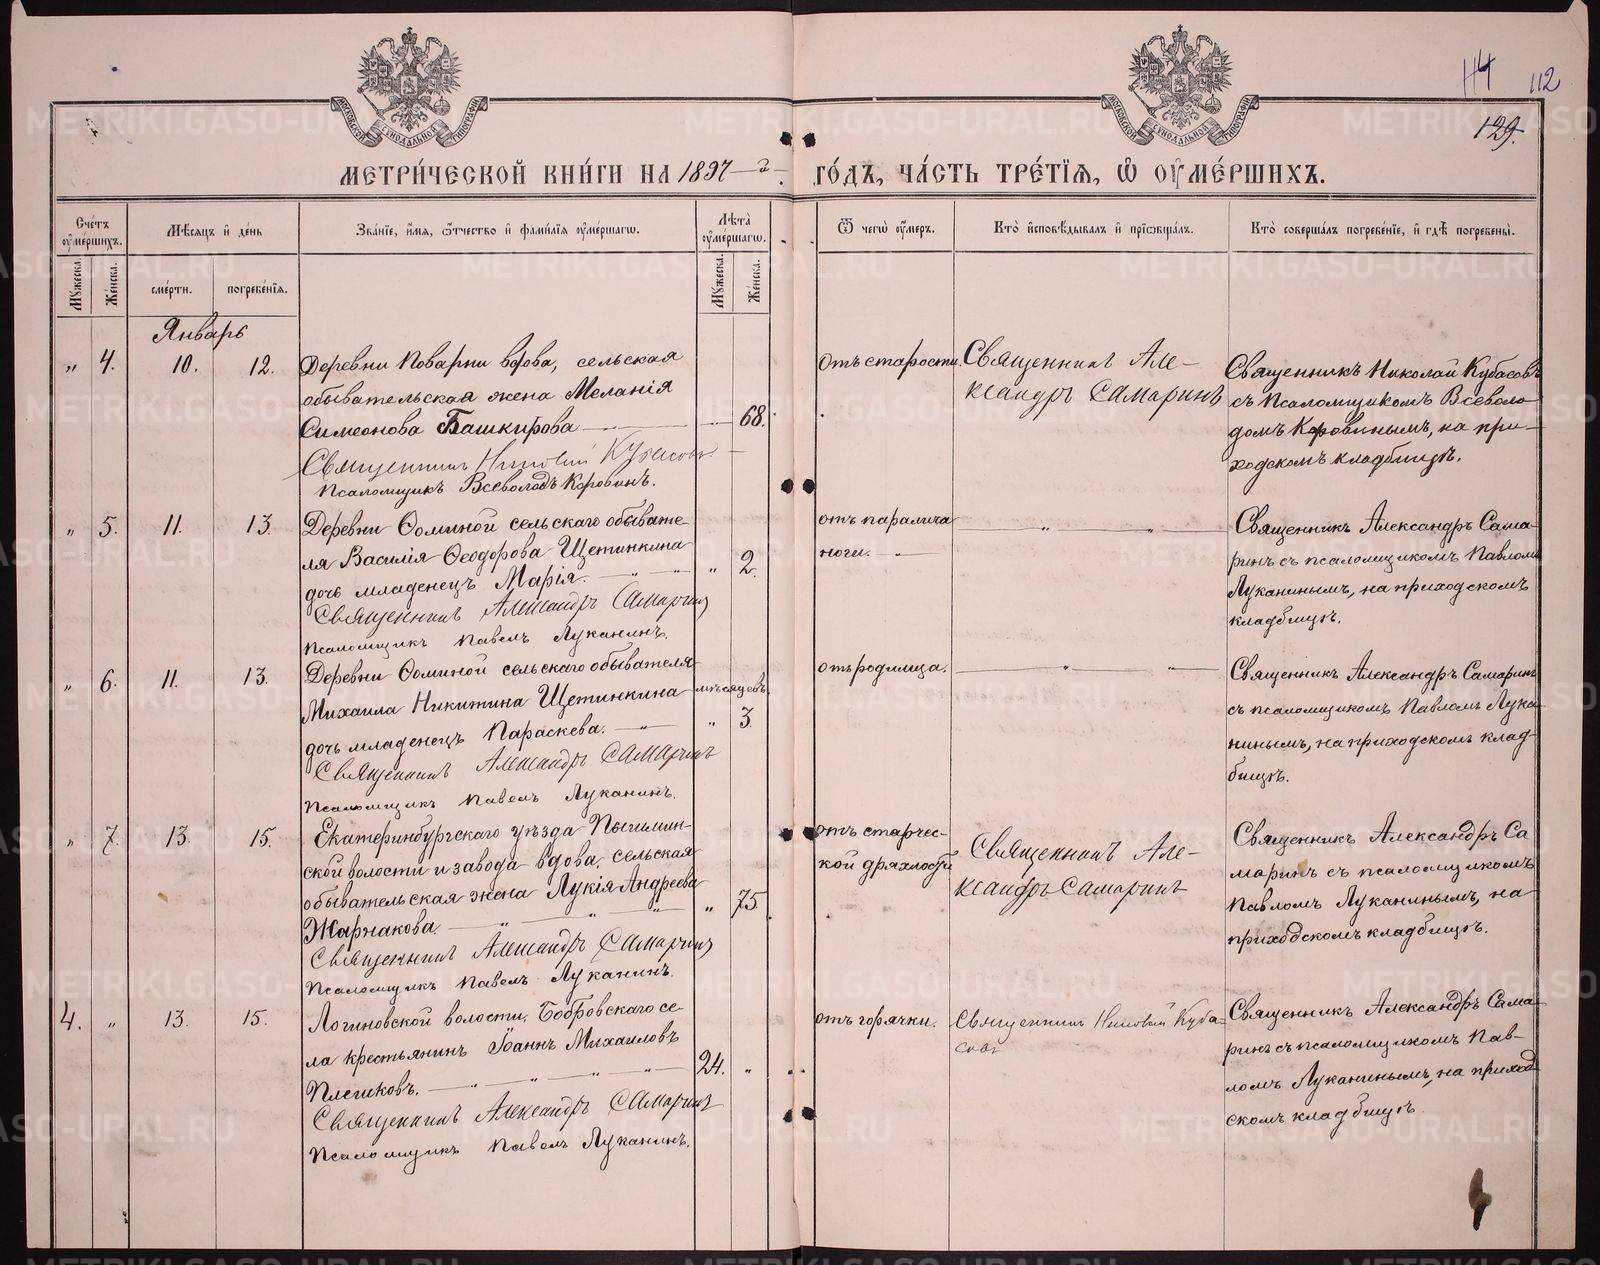 114 112
129.
МОСКОВСКОЙ СѴНОДАЛЬНОЙ ТИПОГРАФІИ
МОСКОВСКОЙ СѴНОДАЛЬНОЙ ТИПОГРАФІИ
МЕТРИ́ЧЕСКОЙ КНИ́ГИ НА 1897-й ГО́ДЪ, ЧА́СТЬ ТРЕ́ТІЯ, Ѡ ОУМЕ́РШИХЪ.
Сче́тъ оуме́ршихъ. Мѣ́сяцъ и де́нь Зва́ніе, и́мя, ѻ҆́тчество и фами́лія оуме́ршагѡ. Лѣта̀ оуме́ршагѡ. Ѿ чегѡ̀ оу́меръ. Кто̀ и҆сповѣ́дывалъ и прїѡбща́лъ. Кто̀ соверша́лъ погребе́ніе, и гдѣ̀ погребены̀.
Му́жеска. Же́нска. сме́рти. погребе́нія. Му́жеска. Же́нска.
Январь
„ 4. 10. 12. Деревни Поварни вдова, сельская
обывательская жена Меланія
Симеонова Башкирова 68.
Священникъ Николай Кубасовъ
Псаломщикъ Всеволодъ Коровинъ.
Отъ старости.
Священникъ Але-
ксандръ Самаринъ
Священникъ Николай Кубасовъ
съ псаломщикомъ Всеволо-
домъ Коровинымъ, на при-
ходскомъ кладбищѣ.
„ 5. 11. 13. Деревни Ѳоминой сельскаго обывате-
ля Василія Ѳеодорова Щетинкина
дочь младенецъ Марія. „ 2.
Священникъ Александръ Самаринъ
Псаломщикъ Павелъ Луканинъ.
отъ паралича
ноги.
Священникъ Александръ Сама-
ринъ съ псаломщикомъ Павломъ
Луканинымъ, на приходскомъ
кладбищѣ.
„ 6. 11. 13. Деревни Ѳоминой сельскаго обывателя
Михаила Никитина Щетинкина мѣсяцевъ.
дочь младенецъ Параскева. „ 3
Священникъ Александръ Самаринъ
Псаломщикъ Павелъ Луканинъ.
отъ родимца.
Священникъ Александръ Самаринъ
съ псаломщикомъ Павломъ Лука-
нинымъ, на приходскомъ клад-
бищѣ.
„ 7. 13. 15. Екатеринбургскаго уѣзда Пышмин-
ской волости и завода вдова, сельская
обывательская жена Лукія Андреева
Жарнакова. „ 75
Священникъ Александръ Самаринъ
Псаломщикъ Павелъ Луканинъ.
отъ старчес-
кой дряхлости
Священникъ Але-
ксандръ Самаринъ
Священникъ Александръ Са
маринъ съ псаломщикомъ
Павломъ Луканинымъ, на
приходскомъ кладбищѣ.
4. „ 13. 15. Логиновской волости, Бобровскаго се-
ла крестьянинъ Іоаннъ Михаиловъ
Плешковъ. 24. „
Священникъ Александръ Самаринъ
Псаломщикъ Павелъ Луканинъ.
отъ горячки.
Священникъ Николай Куба-
совъ
Священникъ Александръ Сама-
ринъ съ псаломщикомъ Пав-
ломъ Луканинымъ, на приход
скомъ кладбищѣ
METRIKI.GASO-URAL.RU